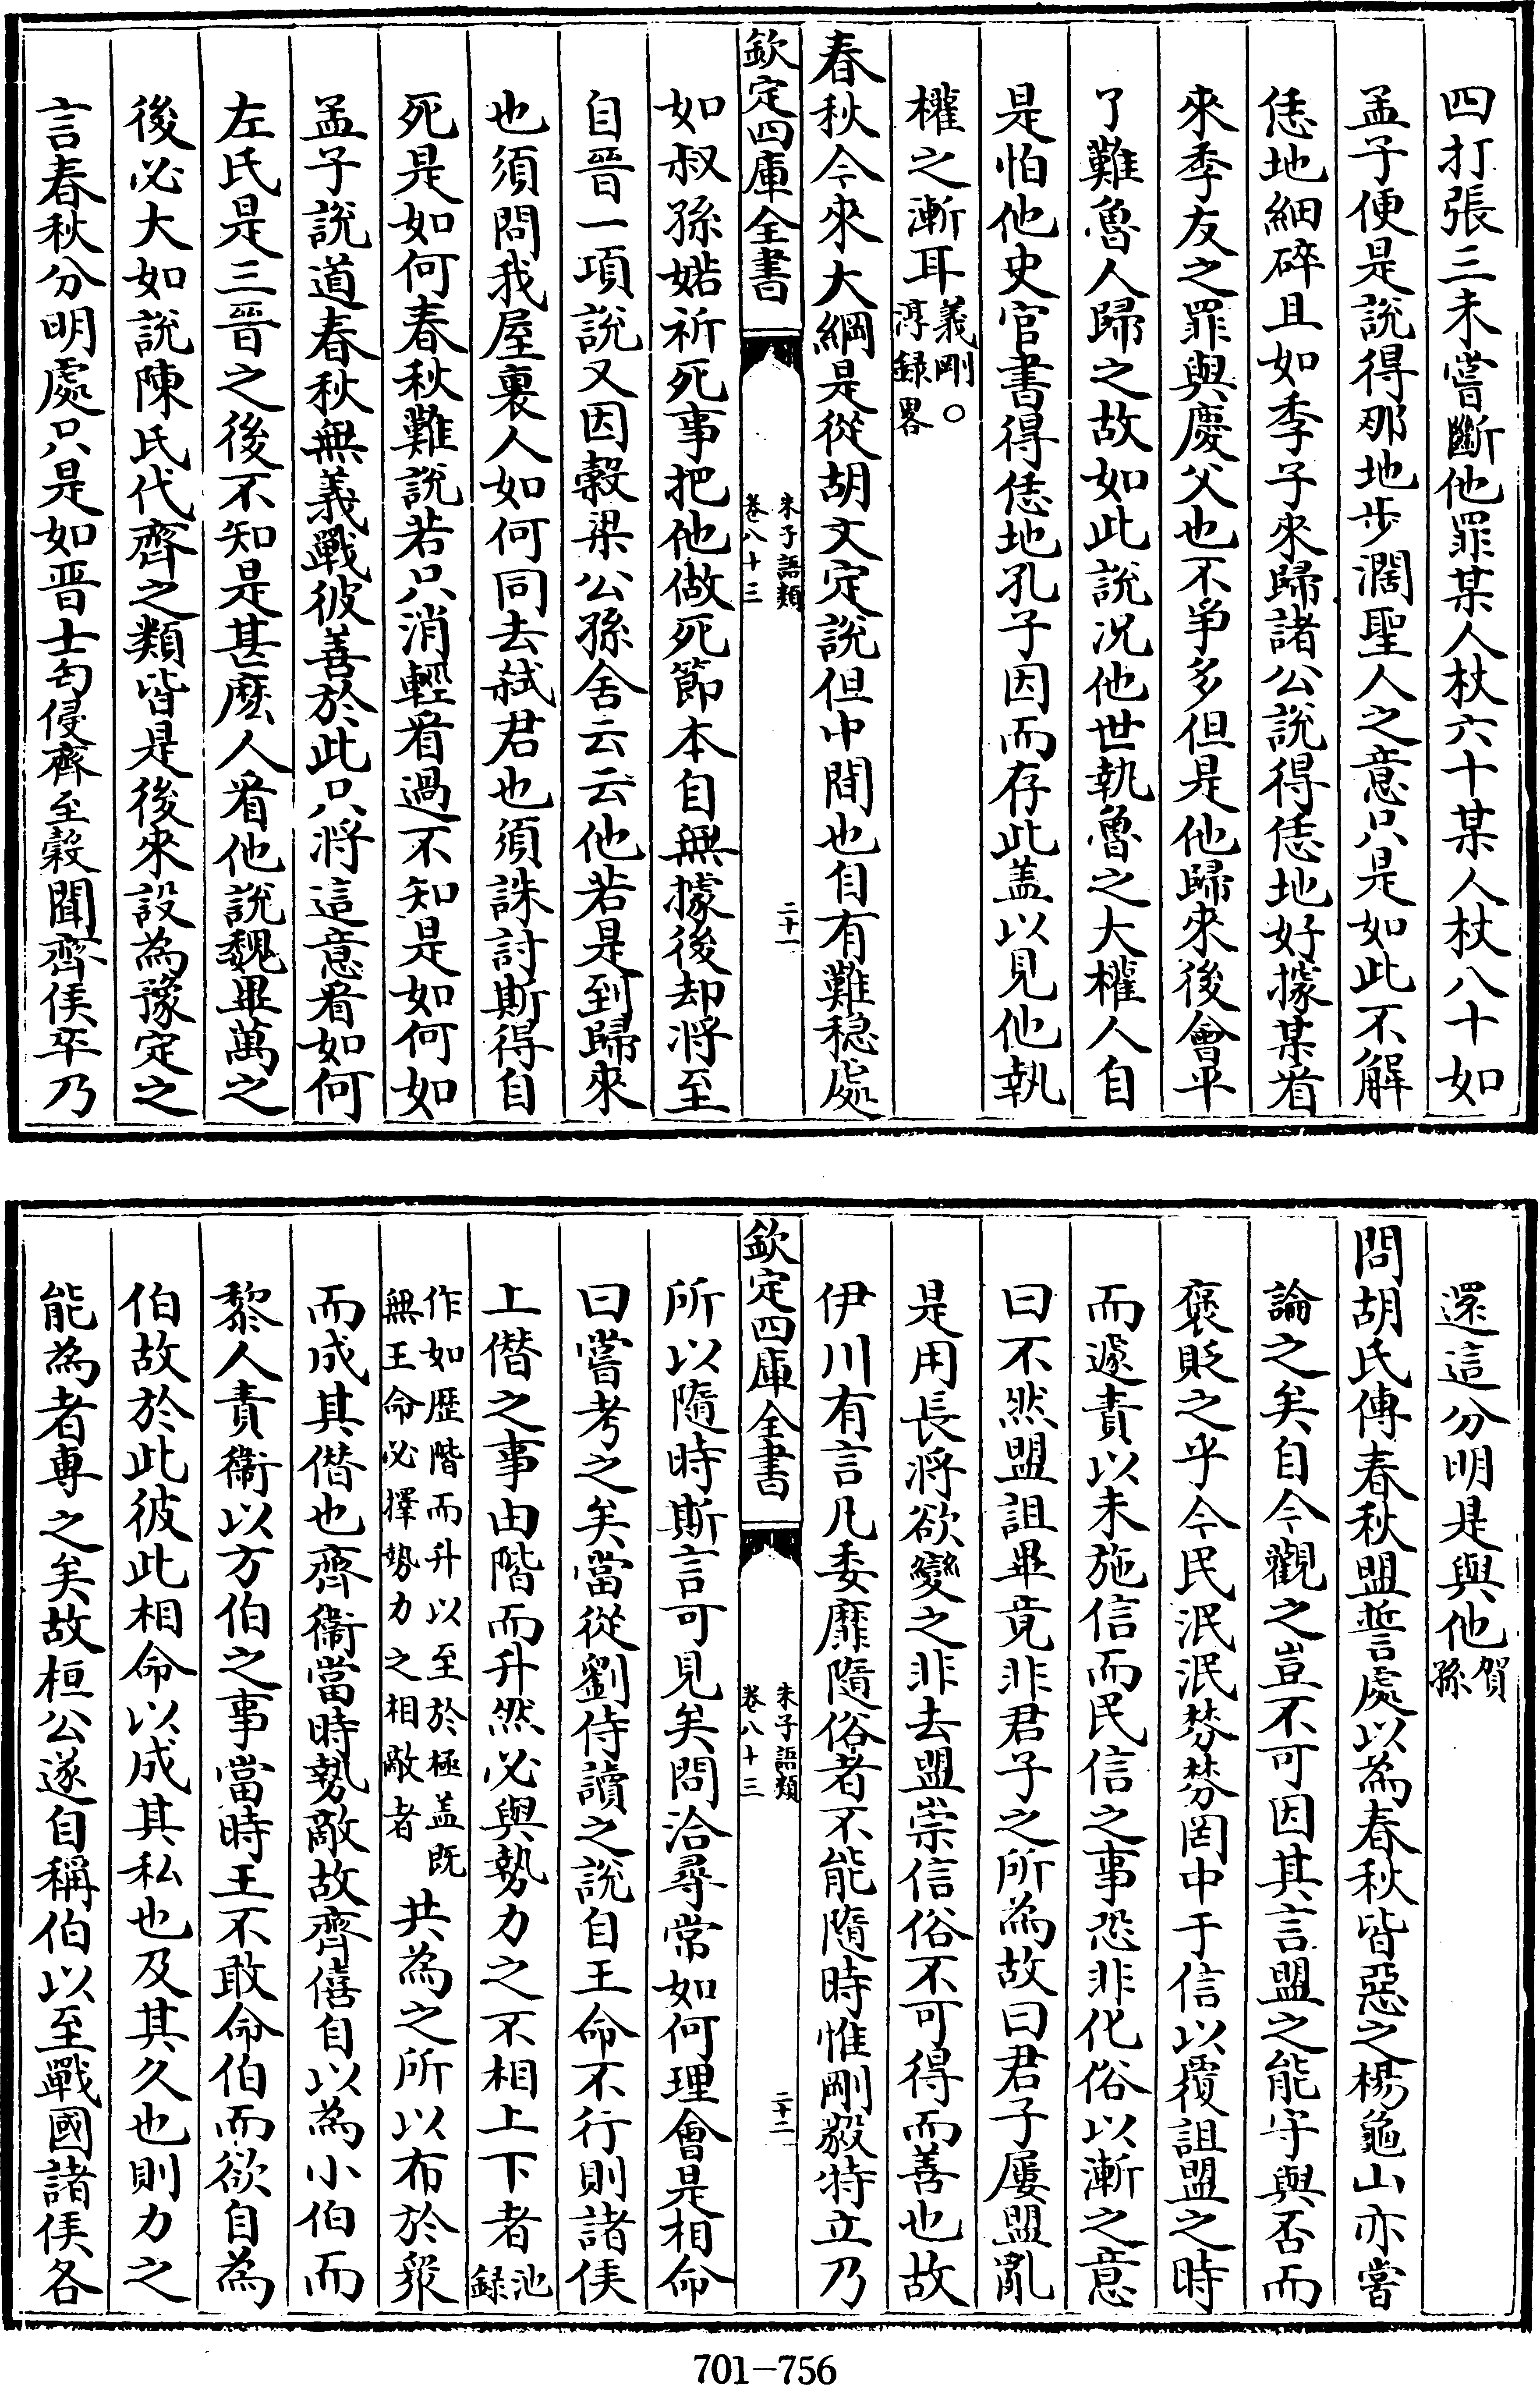 四打張三未嘗斷他罪某人杖六十某人杖八十如
孟子便是說得那地步濶聖人之意只是如此不解
恁地細碎且如季子來歸諸公說得恁地好據某看
來季友之罪與慶父也不爭多但是他歸來後會平
了難魯人歸之故如此說况他世執魯之大權人自
是怕他史官書得恁地孔子因而存此盖以見他執
權之漸耳義剛○淳錄畧
春秋今來大綱是從胡文定說但中間也自有難穏處
欽定四庫全書
朱子語類
卷八十三
二十一
如叔孫婼祈死事把他做死節本自無據後却將至
自晉一項說又因穀梁公孫舍云云他若是到歸來
也須問我屋裏人如何同去弑君也須誅討斯得自
死是如何春秋難說若只消輕看過不知是如何如
孟子說道春秋無義戰彼善於此只將這意看如何
左氏是三晉之後不知是甚麽人看他說魏畢萬之
後必大如說陳氏代齊之類皆是後來設為豫定之
言春秋分明處只是如晋士匄侵齊至穀聞齊侯卒乃
還這分明是與他賀孫
問胡氏傳春秋盟誓處以為春秋皆惡之楊龜山亦嘗
論之矣自今觀之豈不可因其言盟之能守與否而
褒貶之乎今民泯泯棼棼罔中于信以覆詛盟之時
而遽責以未施信而民信之事恐非化俗以漸之意
曰不然盟詛畢竟非君子之所為故曰君子屢盟亂
是用長將欲變之非去盟崇信俗不可得而善也故
伊川有言凡委靡隨俗者不能隨時惟剛毅特立乃
欽定四庫全書
朱子語類
卷八十三
二十二
所以隨時斯言可見矣問洽尋常如何理會是相命
曰嘗考之矣當從劉侍讀之說自王命不行則諸侯
上僭之事由階而升然必與勢力之不相上下者池錄
作如歴階而升以至於極盖既無王命必擇勢力之相敵者共為之所以布於衆
而成其僭也齊衞當時勢敵故齊僖自以為小伯而
黎人責衞以方伯之事當時王不敢命伯而欲自為
伯故於此彼此相命以成其私也及其久也則力之
能為者專之矣故桓公遂自稱伯以至戰國諸侯各
701-756